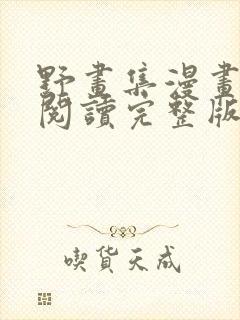 野畫集漫畫
閱讀完整版
喫貨天成